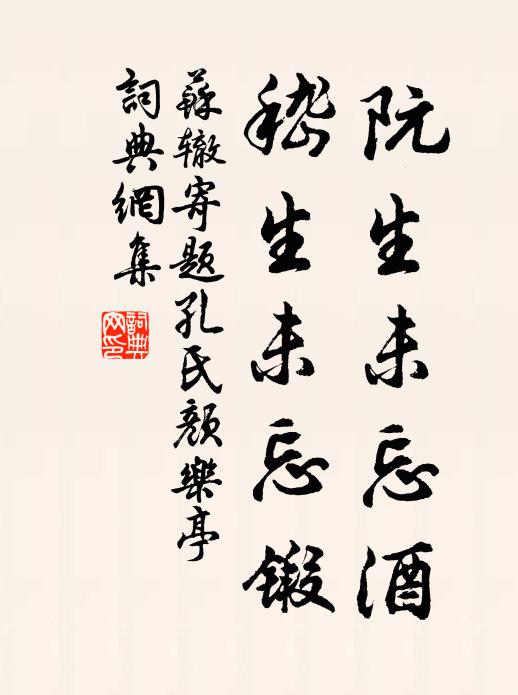 阮生未忘酒
嵇生未忘鍛
蘇辙寄題孔氏顏樂亭
詞典網集
詞典网印